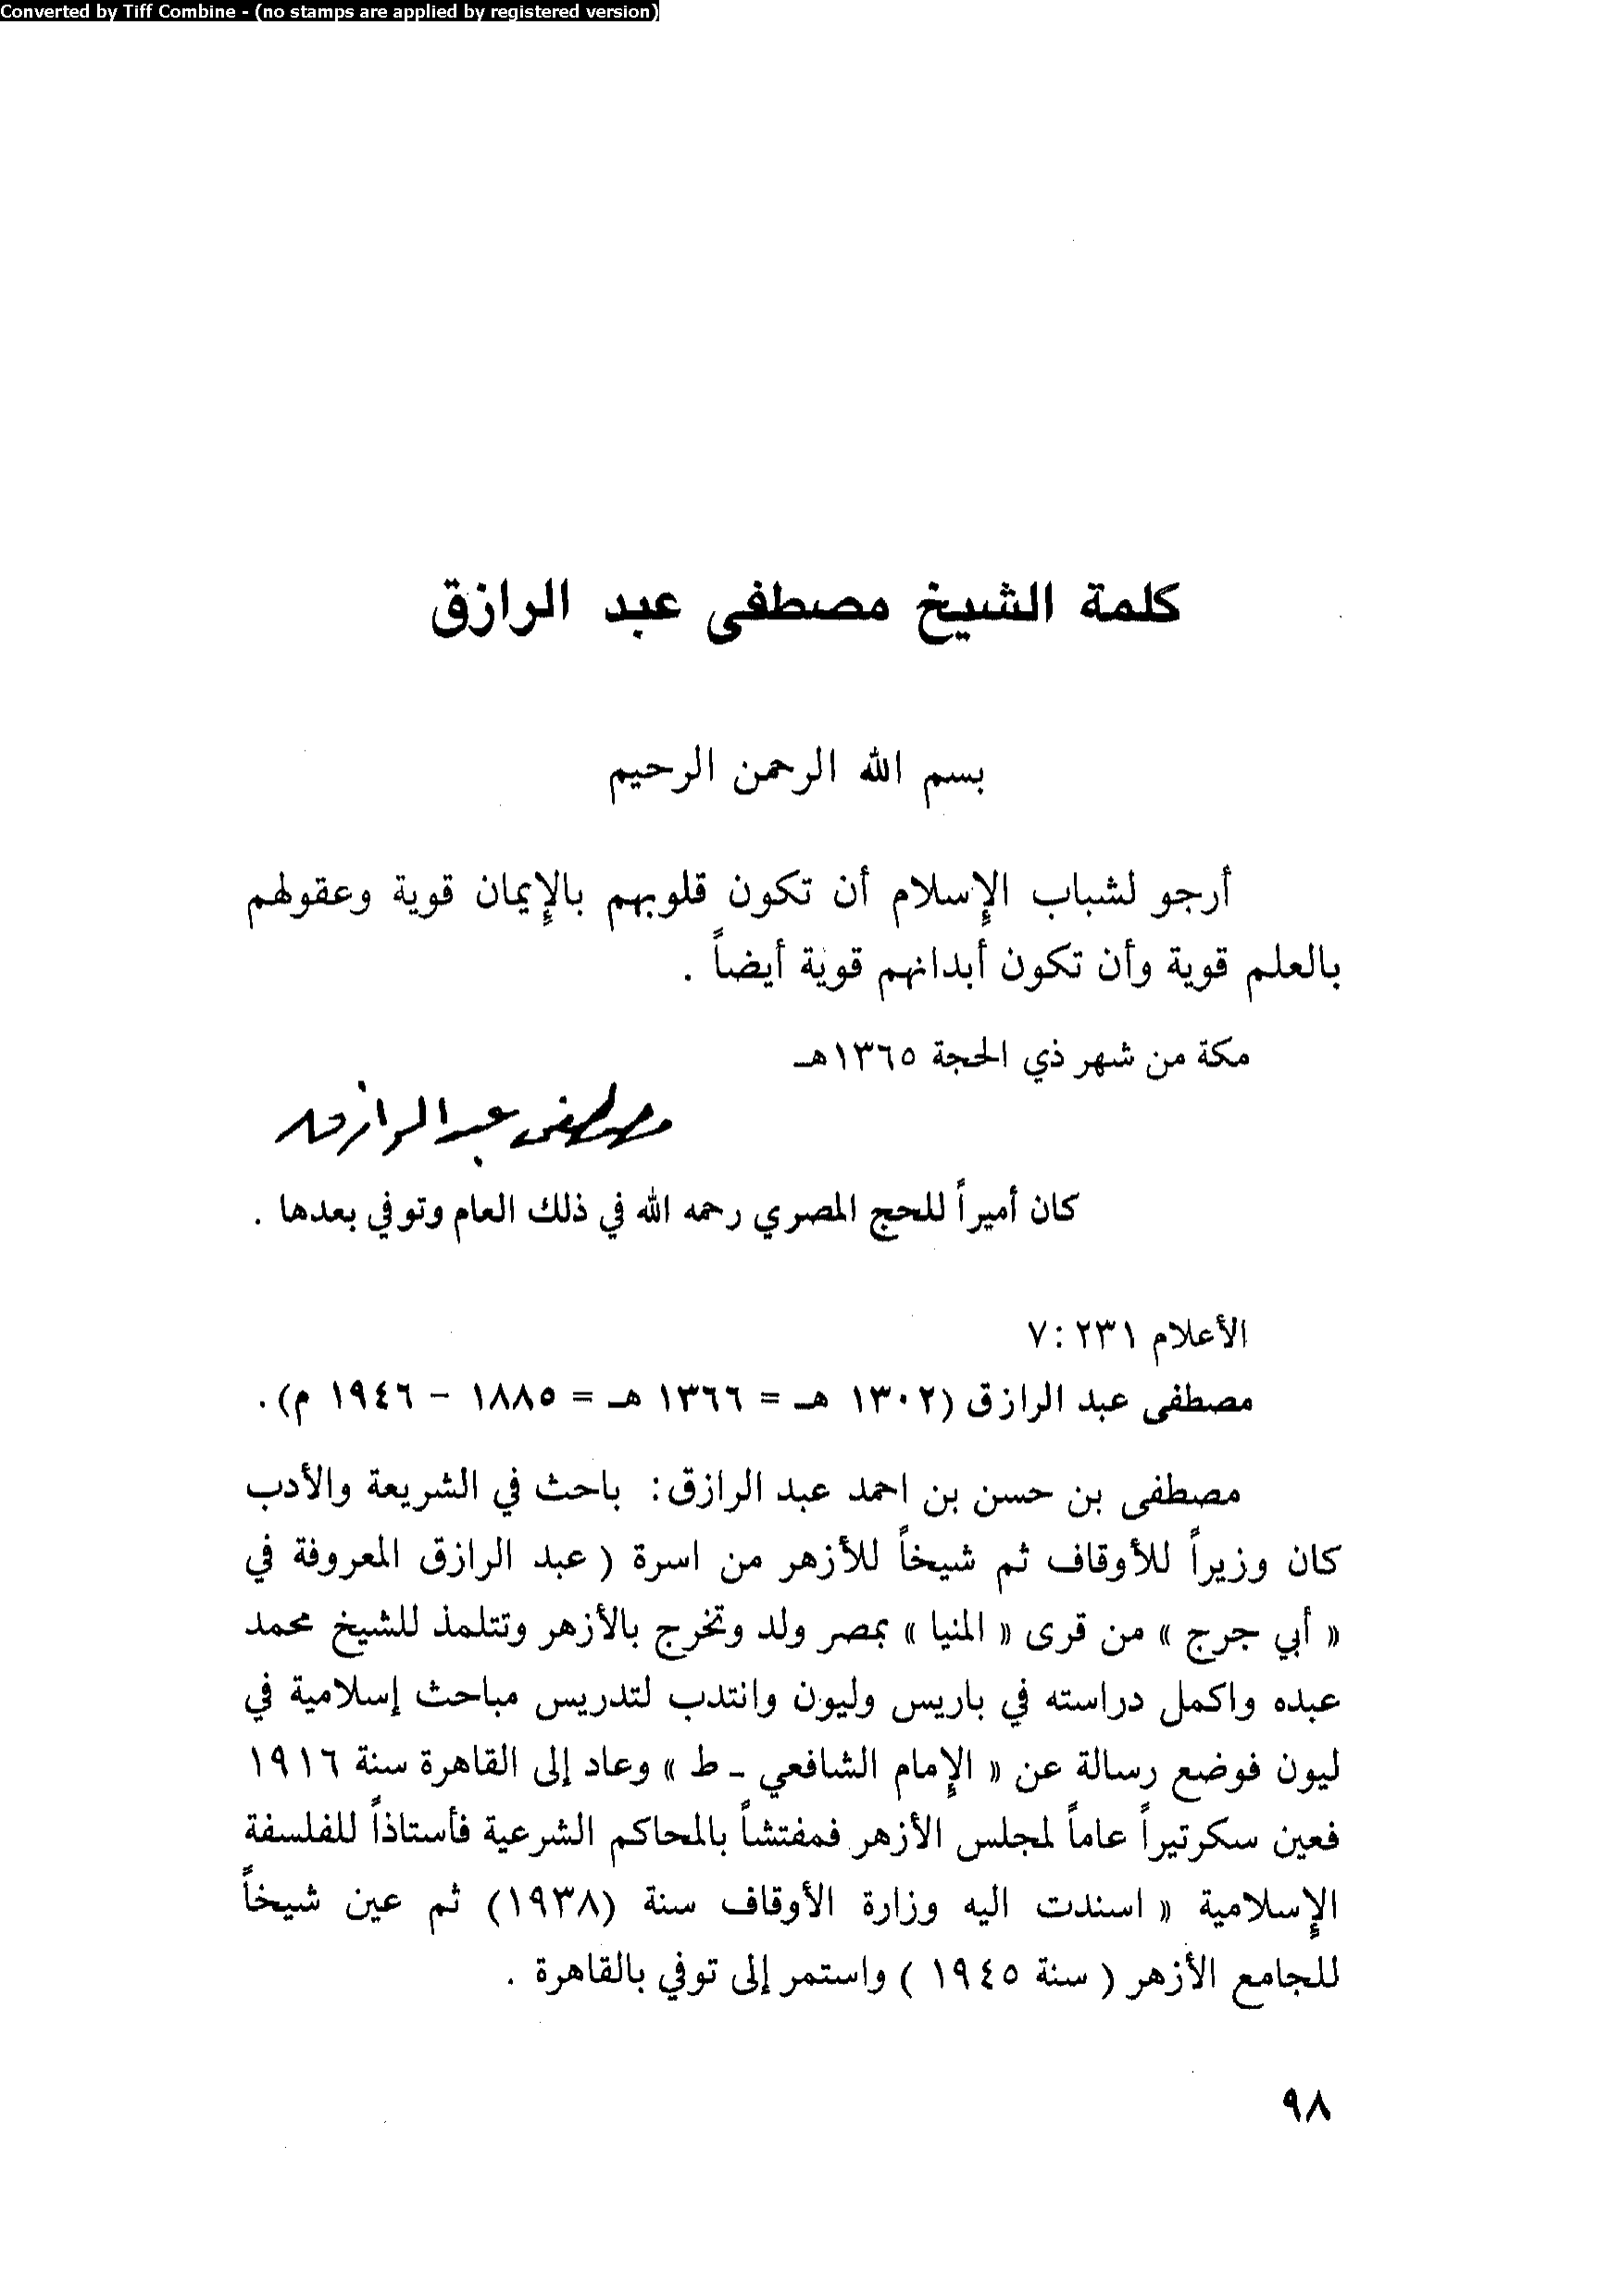 Converted by Tiff Combine - (no stamps are applied by registered version)
كلمة الشيخ مصطفى عبد الرازق
بسم الله الرحمن الرحيم
أرجو لشباب الإسلام أن تكون قلوبهم بالإيمان قوية وعقولهم
بالعلم قوية وأن تكون أبدانهم قوية أيضاً .
مكة من شهر ذي الحجة ١٣٦٥هـ
مصطفى عبد الرازق
كان أميراً للحج المصري رحمه الله في ذلك العام وتوفي بعدها .
الأعلام ٢٣١ : ٧
مصطفى عبد الرازق (١٣٠٢ هـ = ١٣٦٦ هـ = ١٨٨٥ - ١٩٤٦ م).
مصطفى بن حسن بن احمد عبد الرازق: باحث في الشريعة والأدب
كان وزيراً للأوقاف ثم شيخاً للأزهر من اسرة ( عبد الرازق المعروفة في
« أبي جرج » من قرى « المنيا » بمصر ولد وتخرج بالأزهر وتتلمذ للشيخ محمد
عبده واكمل دراسته في باريس وليون وانتدب لتدريس مباحث إسلامية في
ليون فوضع رسالة عن « الإمام الشافعي - ط » وعاد إلى القاهرة سنة ١٩١٦
فعين سكرتيراً عاماً لمجلس الأزهر فمفتشاً بالمحاكم الشرعية فأستاذاً للفلسفة
الإسلامية « اسندت اليه وزارة الأوقاف سنة (١٩٣٨) ثم عين شيخاً
للجامع الأزهر ( سنة ١٩٤٥ ) واستمر إلى توفي بالقاهرة .
٩٨